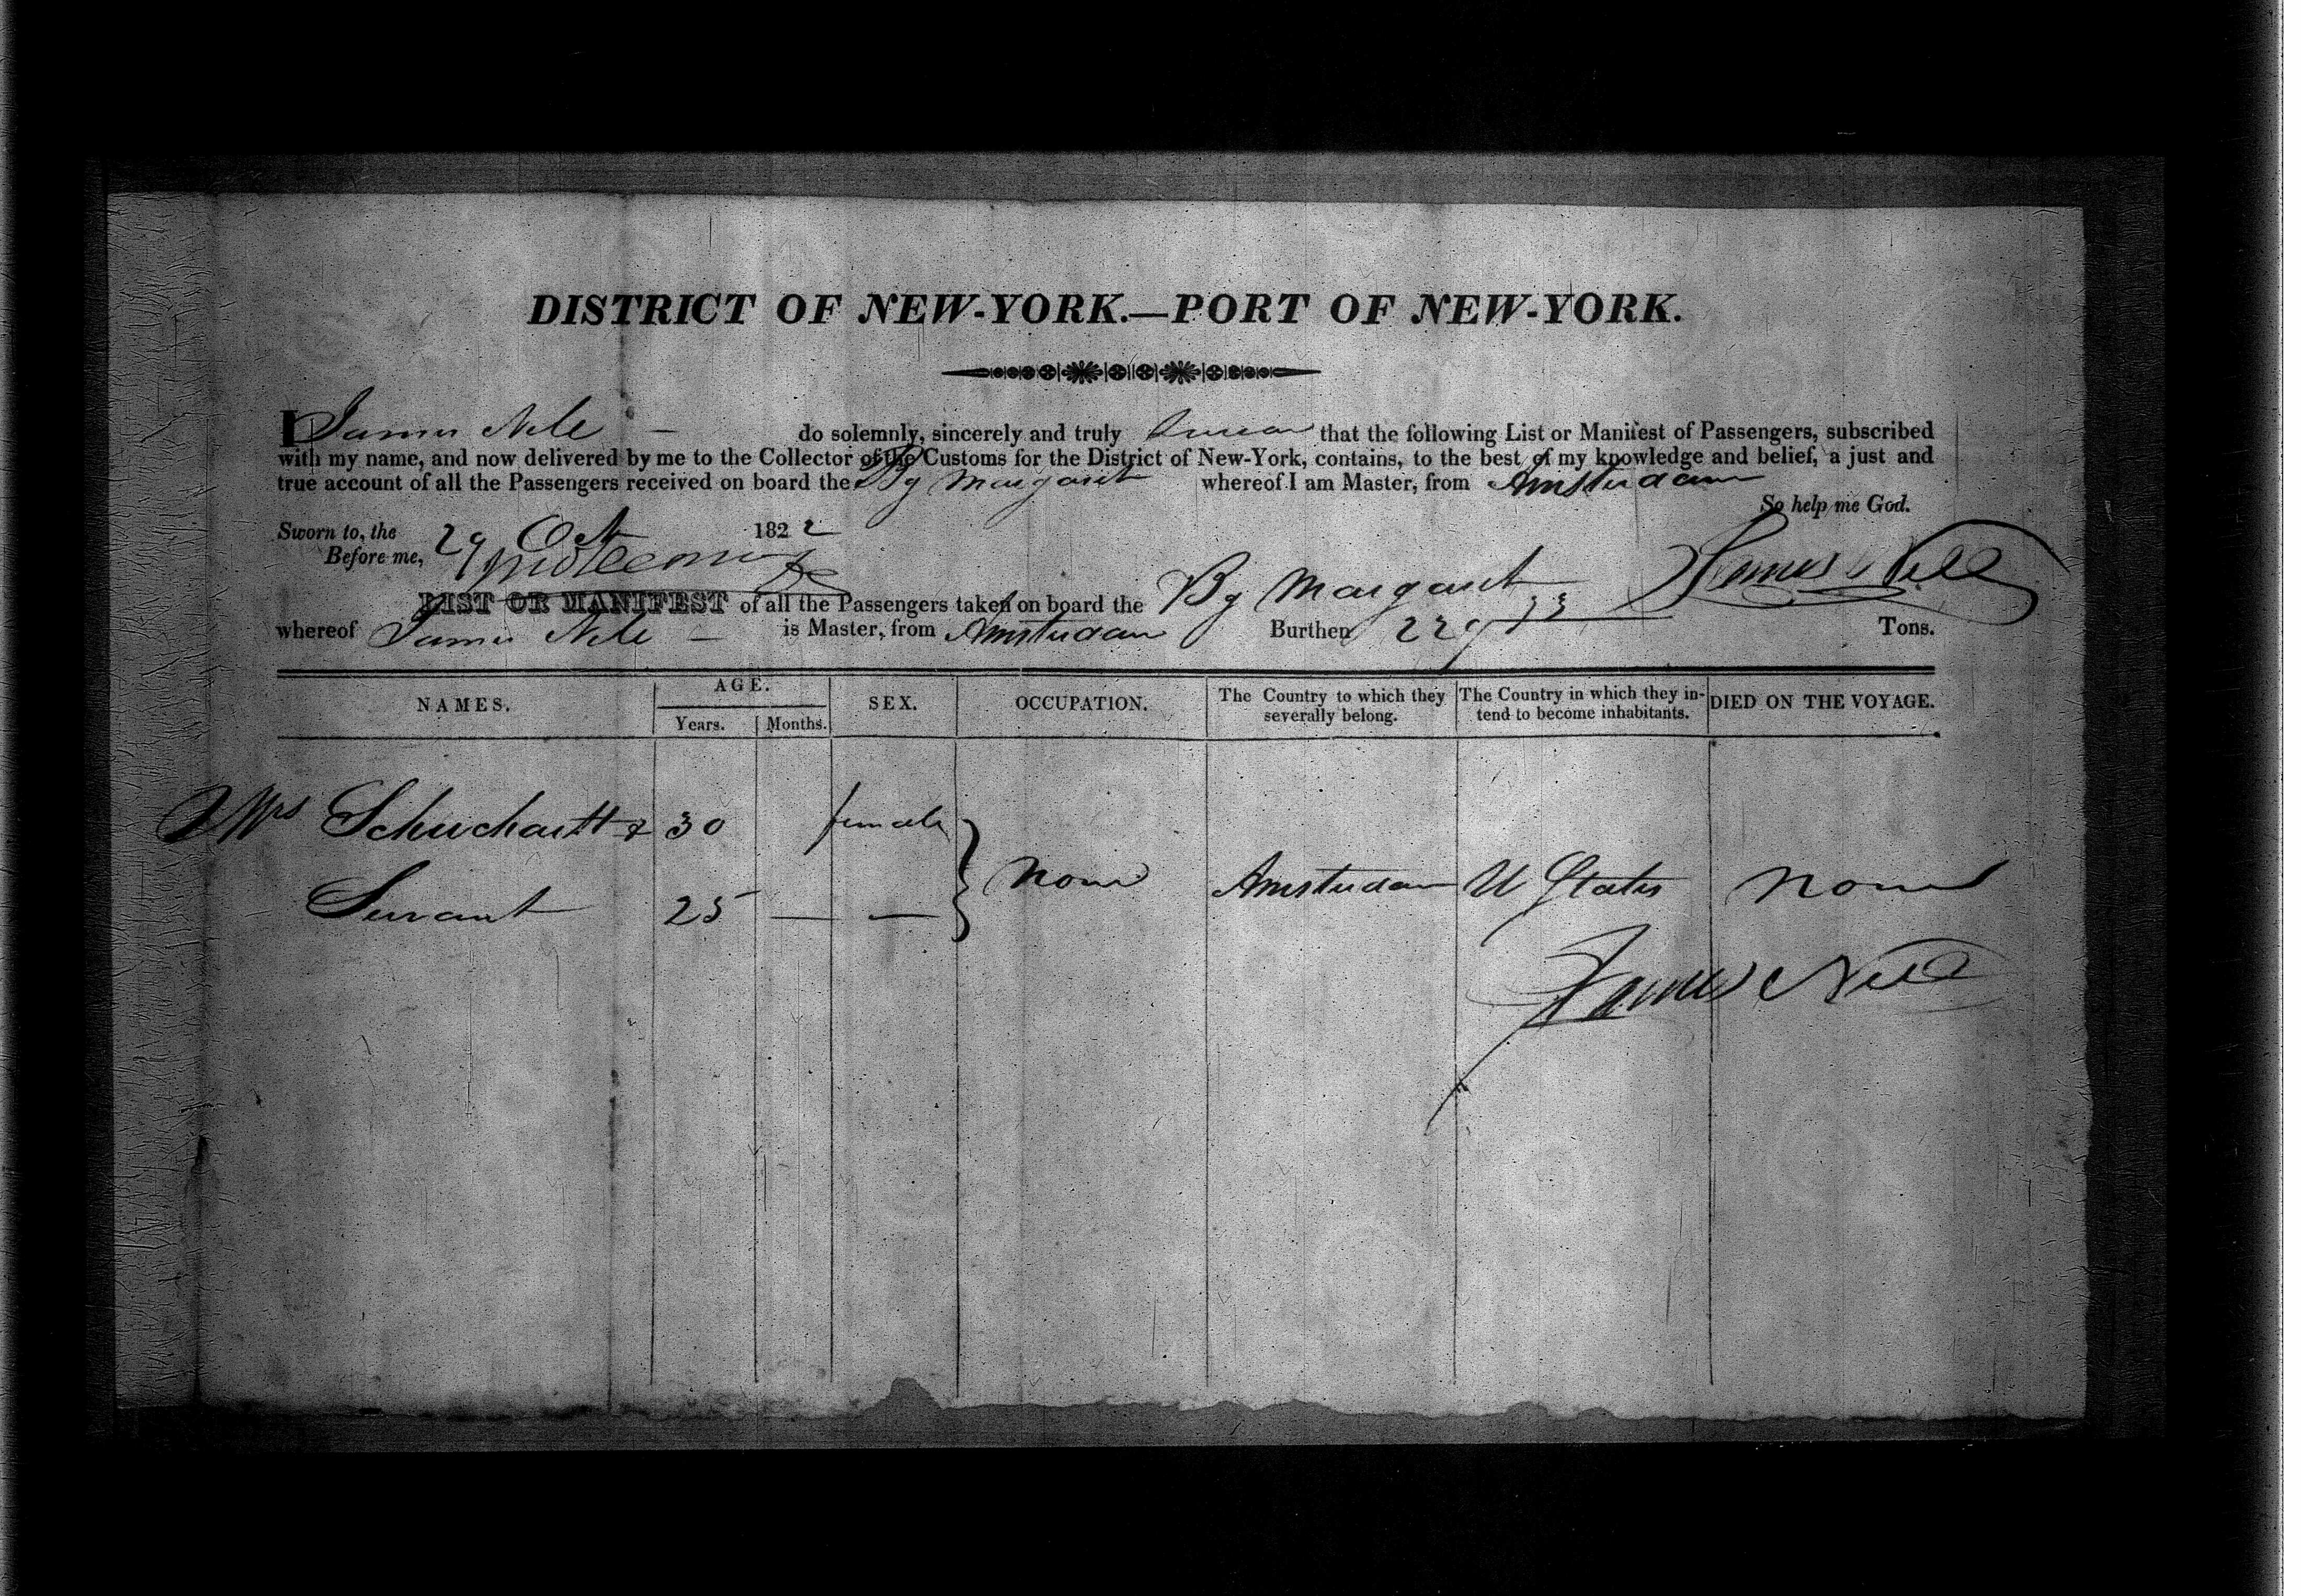 DISTRICT OF NEW-YORK.—PORT OF NEW-YORK.
I James Nele — do solemnly, sincerely and truly Swear that the following List or Manifest of Passengers, subscribed
with my name, and now delivered by me to the Collector of the Customs for the District of New-York, contains, to the best of my knowledge and belief, a just and
true account of all the Passengers received on board the Bg Margaret whereof I am Master, from Amsterdam
So help me God.
Sworn to, the 29 Oct 1822
Before me, James Nell
LIST OR MANIFEST of all the Passengers taken on board the Bg Margaret
whereof James Nele — is Master, from Amsterdam Burthen 229 Tons.
NAMES. AGE. SEX. OCCUPATION. The Country to which they severally belong. The Country in which they intend to become inhabitants. DIED ON THE VOYAGE.
Years. Months.
Mrs Schuchartt & 30 female
None Amsterdam U States None
Servant 25 — —
James Nell